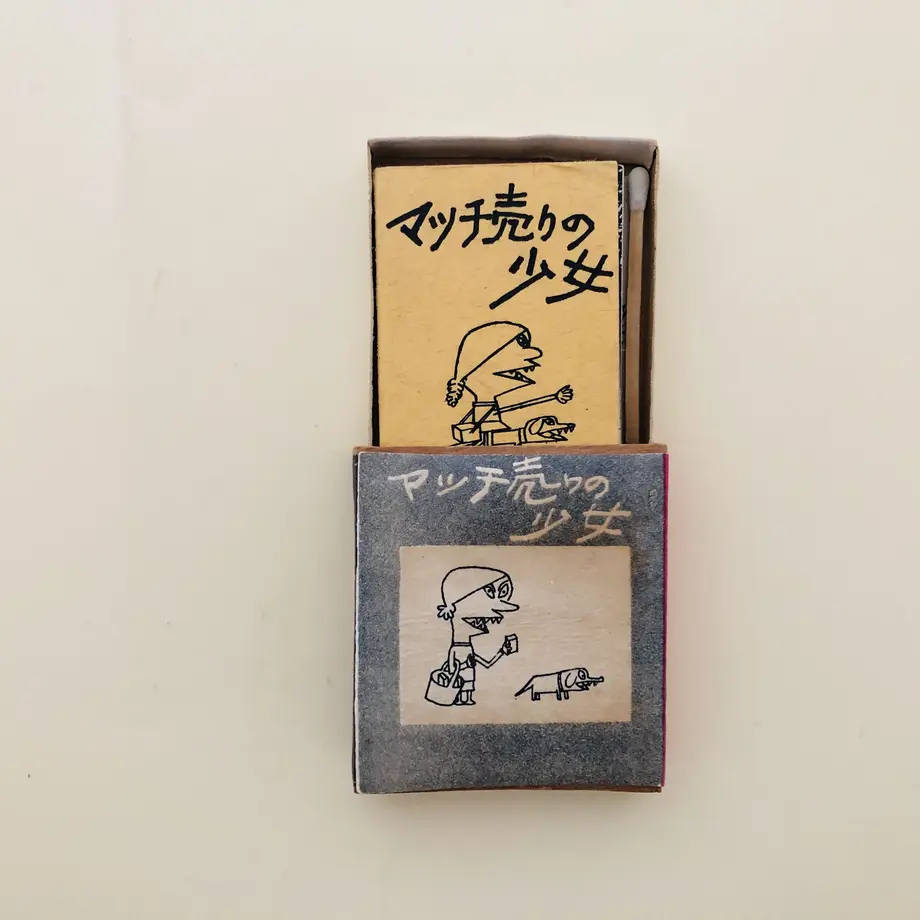 マッチ売りの
少女
マッチ売りの
少女